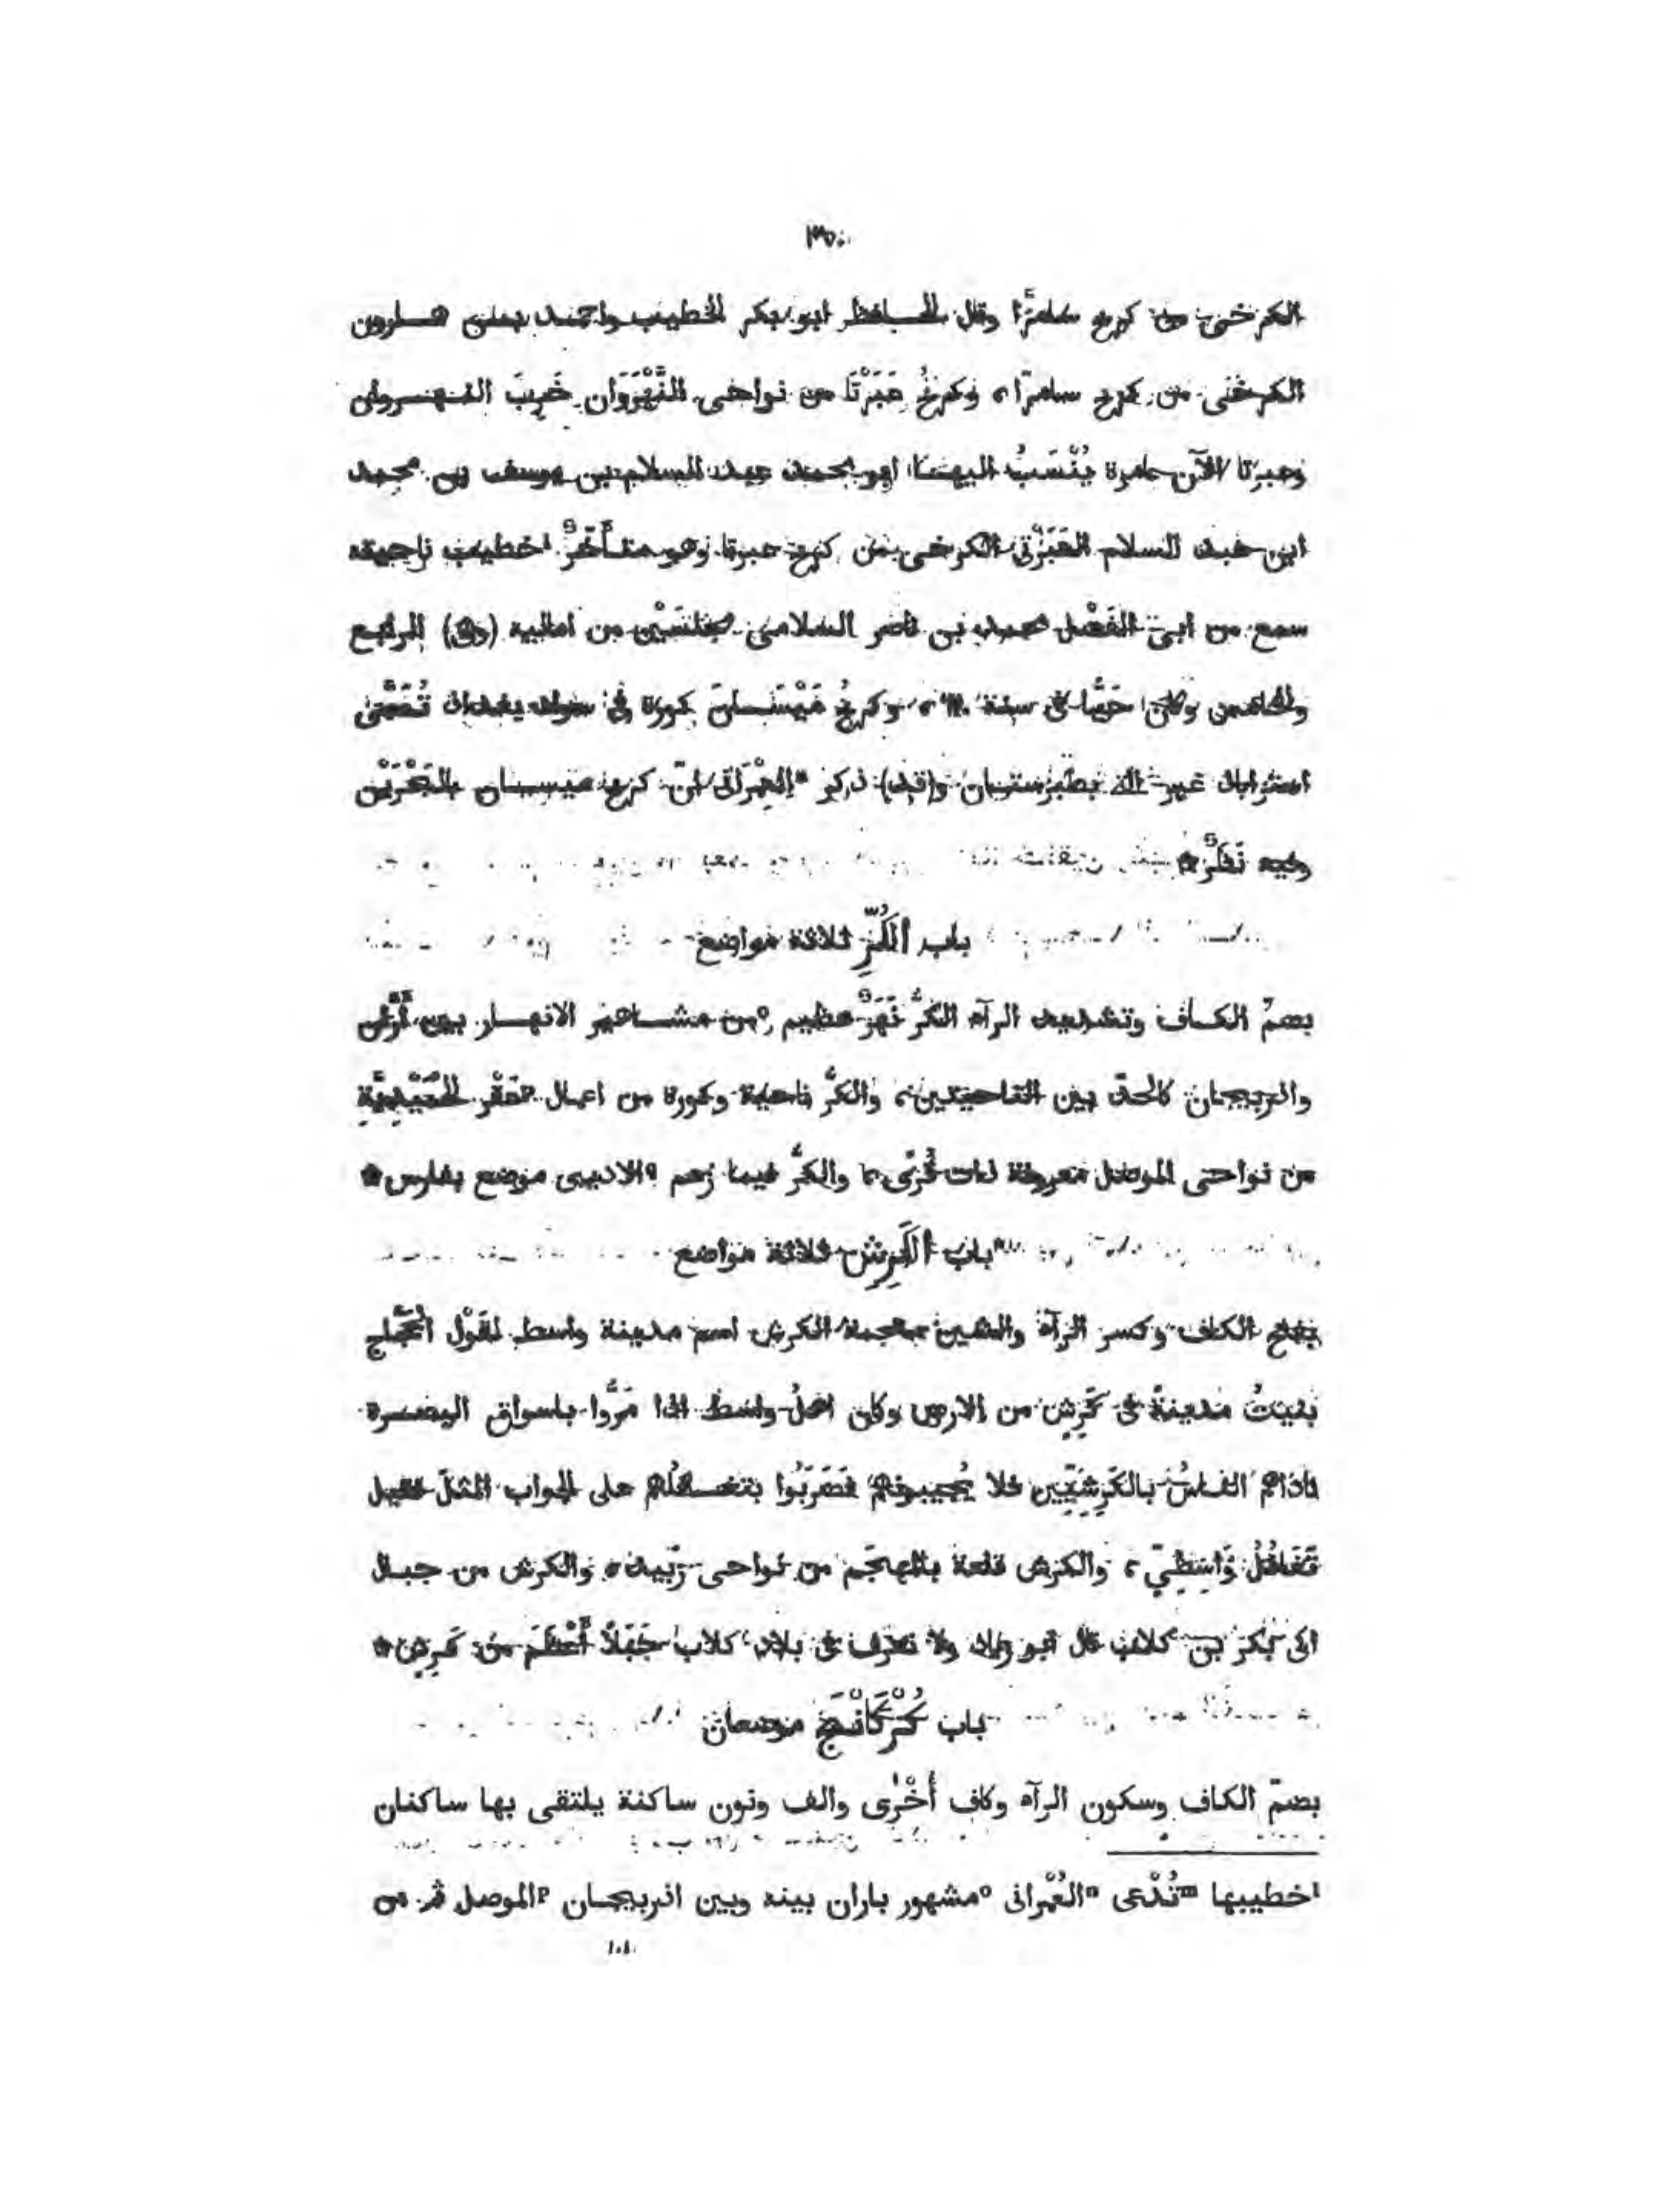 ٣٥٠
الكرخى من كرخ سامرّا وقال الحافظ ابو بكر الخطيب واحمد بن هارون
الكرخى من كرخ سامرّا، وكرخُ عَبَرْتَا من نواحى النَّهْرَوَان خَرِبَ النهروان
وعبرتا الآن عامرة يُنْسَبُ اليها ابو محمد عبد السلام بن يوسف بن محمد
ابن عبد السلام العَبَرْتى الكرخى من كرخ عبرتا وهو متأَخّرٌ ¹خطيب ناحيته
سمع من ابى الفَضْل محمد بن ناصر السلامى مجلسَيْن من اماليه الرابع
والخامس وكان حَيًّا فى سنة وكرخُ مَيْسَانَ كورة فى سواد بغداد تُسَمَّى
استراباد غير الله بطبرستان ذكر العِمْرَانى انّ كرخ ميسان بالبَحْرَيْن
وفيه نَظَرٌ*
باب الكُرِّ ثلاثة مواضع
بضمّ الكاف وتشديد الرآه الكُرُّ نَهَرٌ عظيم °من مشاهير الانهار بين أَرَّان
واذربيجان كالحدّ بين الناحيتين، والكُرُّ ناحية وكورة من اعمال عَقْر الحُمَيْدِيَّةِ
من نواحى الموصل معروفة ذات قُرًى، والكُرُّ فيما زعم الاديبى موضع بفارس*
باب الكَرِشِ ثلاثة مواضع
بفتح الكاف وكسر الرآه والشين معجمة الكرش اسم مدينة واسط لقَوْل الحَجَّاج
بنيتُ مدينةً فى كَرِشٍ من الارض وكان اهلُ واسط اذا مَرُّوا باسواق البصرة
ناداهم الناسُ بالكَرِشِيِّين فلا يُجيبونهم فضَرَبُوا بتغافلُهم على الجواب المثلَ فقيل
تَغَافُلُ وَاسِطِيٍّ، والكرش قلعة بالمهجَم من نواحى زبيد، والكرش من جبال
ابى بكر بن كلاب قال ابو زياد ولا نعرف فى بلاد كلاب جَبَلاً أَعْظَمَ من كَرِشٍ*
باب كُرْكَانْجَ موضعان
بضمّ الكاف وسكون الرآه وكاف أُخْرٰى والف ونون ساكنة يلتقى بها ساكنان
¹خطيبها ᵐتُدْعى ⁿالعُمْرانى °مشهور باران بينه وبين اذربيجان ᵖالموصل ثر من